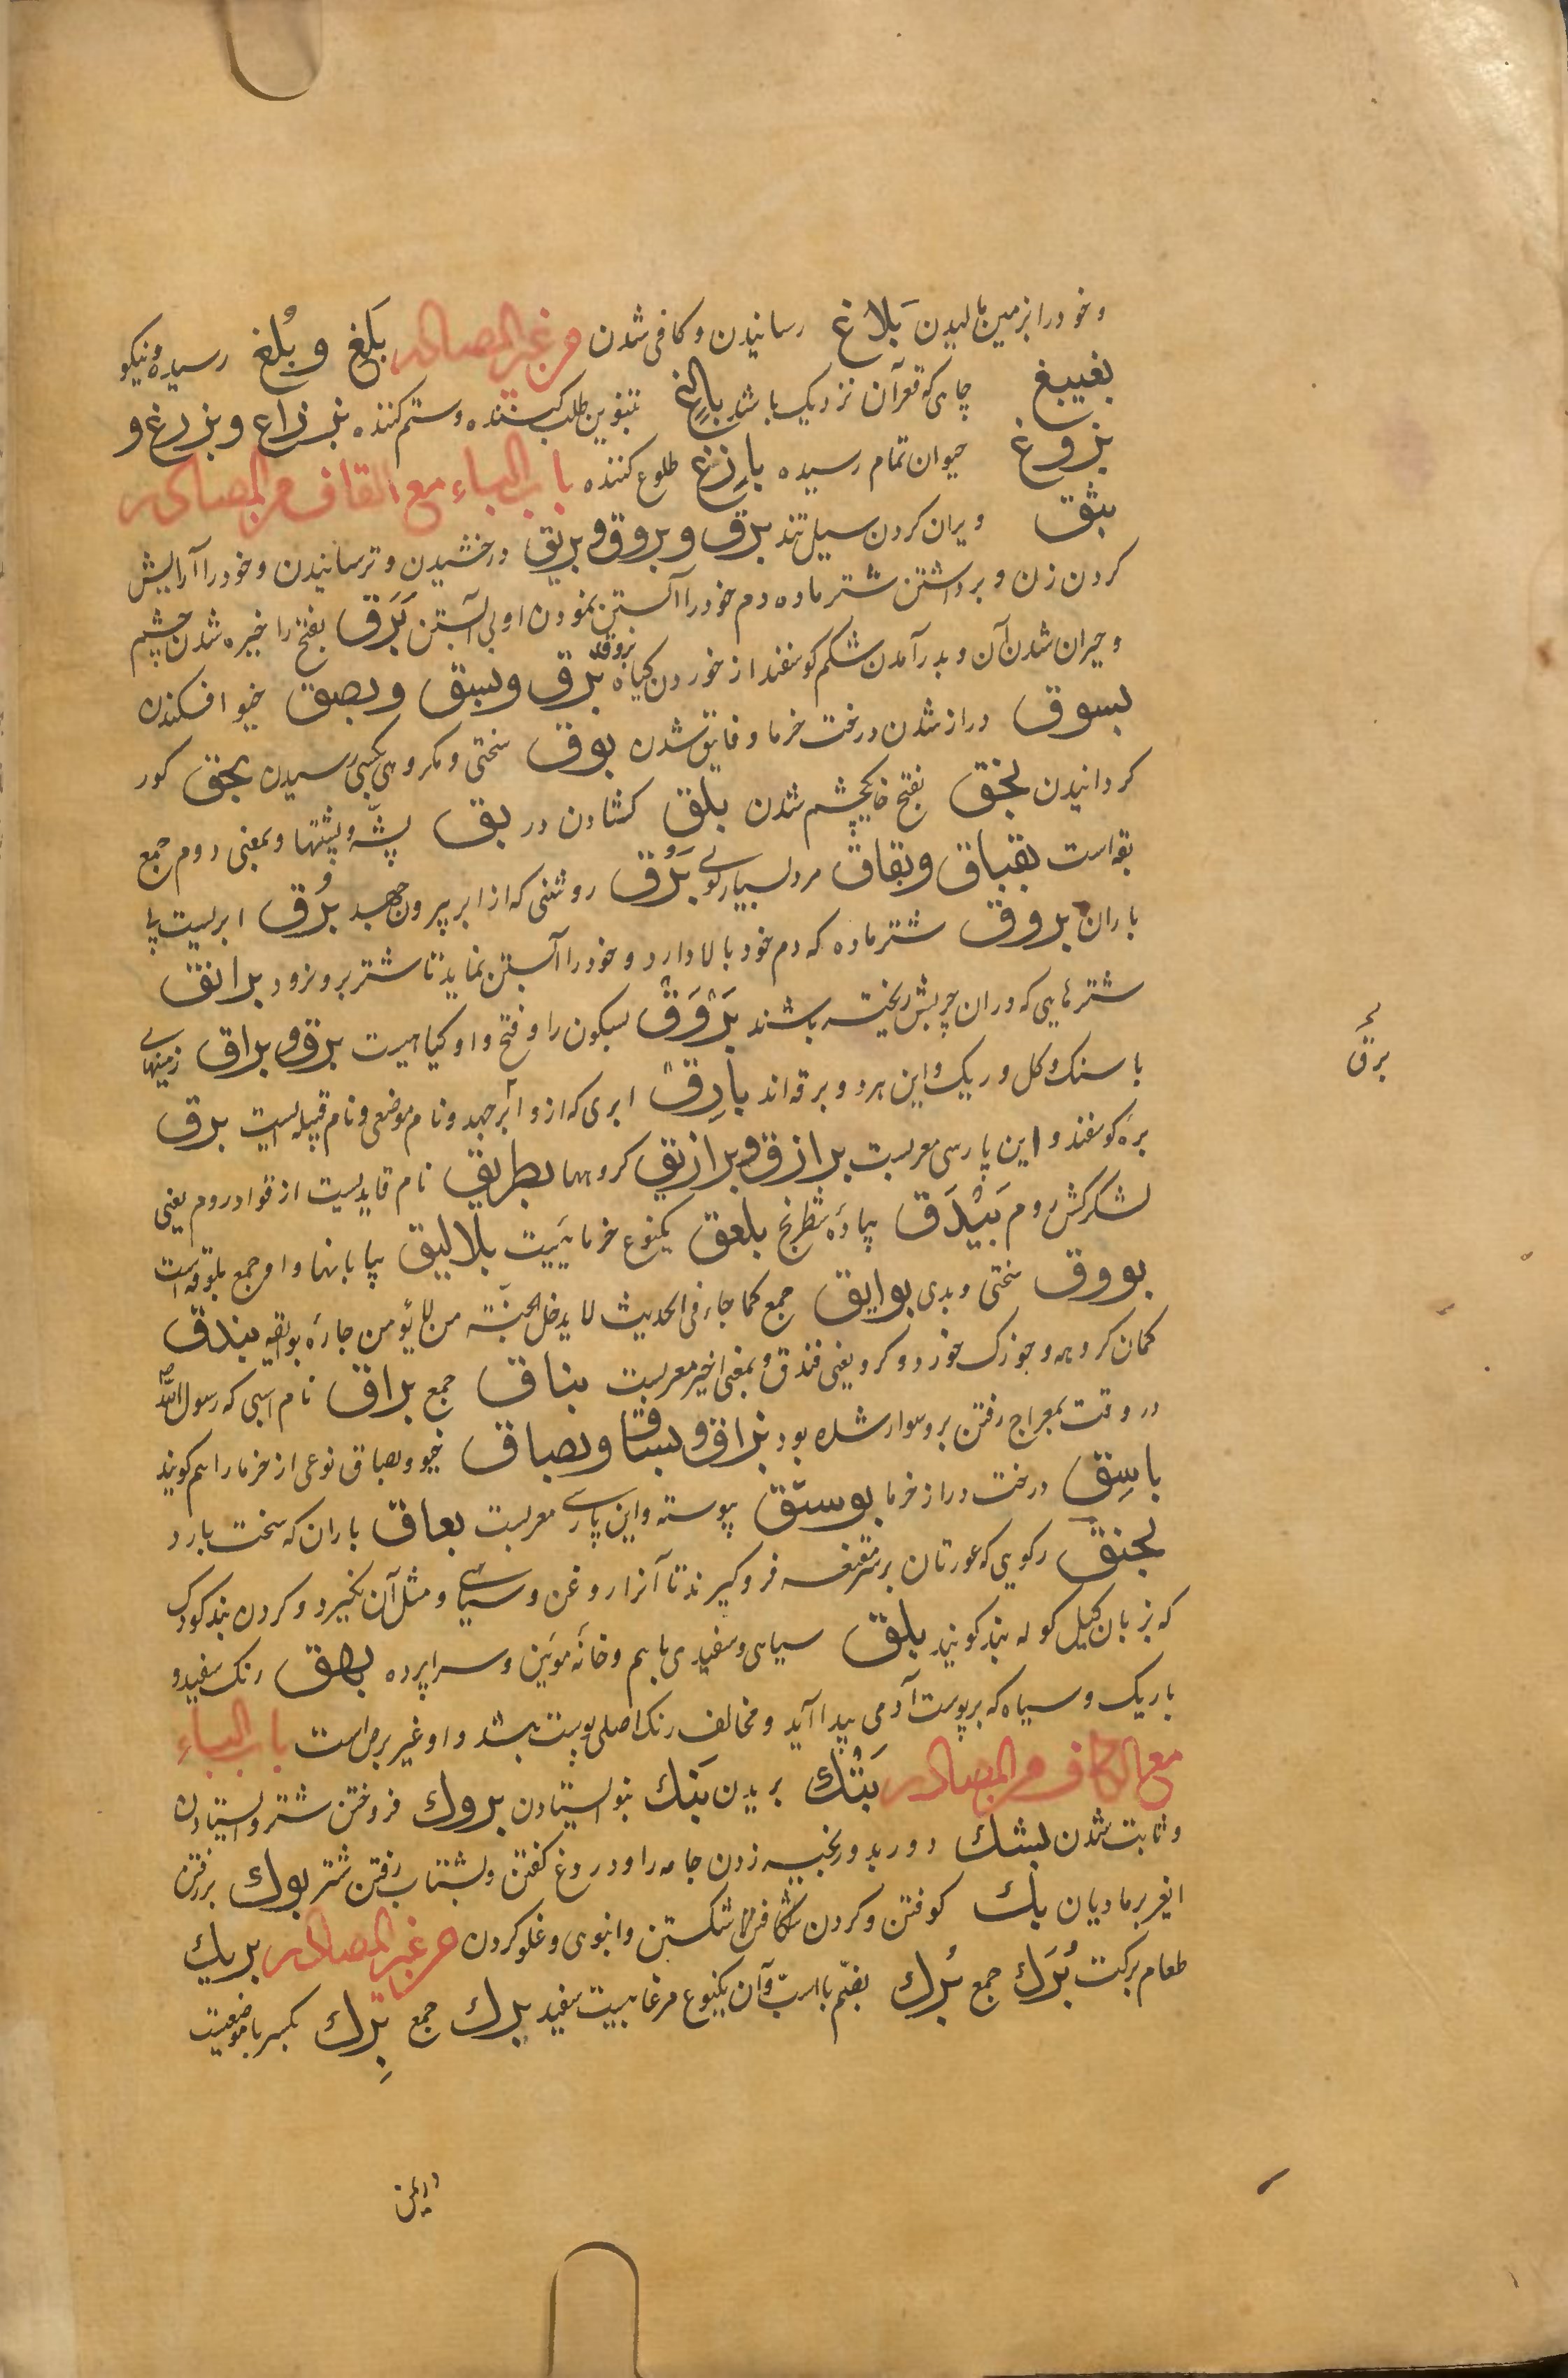 و خود را بزمین مالیدن بَلَاغ رسانیدن و کافی شدن من غیر المصادر بَلْغ و بُلغ رسیده و نیکو
بغیبغ چاهی که قعر آن نزدیک باشد بالغٍ بتنوین طلب کننده و ستم کننده بزاغ و بزرغ و
بزوغ حیوان تمام رسیده بازِغ طلوع کننده باب الباء مع القاف من المصادر
بثق ویران کردن سیل تند برق و بروق و بریق درخشیدن و ترسانیدن و خود را آرایش
کردن زن و برداشتن شتر ماده دم خود را آبستن نمودن او بی آبستن بَرَق بفتح را خیره شدن چشم
و حیران شدن آن و بدر آمدن شکم کوسفند از خوردن کیاه بروقه بزق و بسق و بصق خیو افکندن
بسوق دراز شدن درخت خرما و فایق شدن بوق سختی و مکروهی بکسی رسیدن بخق کور
کردانیدن بخق بفتح خا یکچشم شدن بلق کشادن در بق پشّه و پشّتها و بمعنی دوم جمع
بقه است بقباق و بقاق مرد بسیار کوی بَرْق روشنی که از ابر بیرون جهد بُرْق ابریست با
باران بروق شتر ماده که دم خود بالا دارد و خود را آبستن نماید تا شتر برو نرود برانق
شترهایی که دران چربش ریخته باشند بَرْوَق بسکون را و فتح واو کیاهیست برق و براق زمینهای
با سنک و کل و ریک و این هر دو برقه اند بارِق ابری که ازو ابر جهد و نام موضعی و نام قبیله ایست برق
برّه کوسفند و این پارسی معربست برازق و برازیق کروهها بطریق نام قایدیست از قواد روم یعنی
لشکرکش روم بَیْدَق پیاده شطرنج بلعق یکنوع خرمائیست بلالیق بیابانها و او جمع بلوقه است
بووق سختی و بدی بوایق جمع کما جاء فی الحدیث لا یدخل الجنّة من لا یؤمن جاره بوایقه بندق
کمان کروهه و جوزک خورد و کرد یعنی فندق و بمعنی اخیر معربست بناق جمع براق نام اسبی که رسول الله
در وقت بمعراج رفتن برو سوار شده بود بزاق و بساق و بصاق خیو و بصاق نوعی از خرما را هم کویند
باسِق درخت دراز خرما بوستق پیوسته و این پارسی معربست بعاق باران که سخت بارد
بخنق رکویی که عورتان بر سر مقنعه فرو کیرند تا آنرا روغن و سیاهی و مثل آن نکیرد و کردن بند کودک
که بزبان کیل کوله بند کویند بلق سیاهی و سفیدی با هم و خانه مویین و سراپرده بهق رنک سفید و
باریک و سیاه که بر پوست آدمی پیدا آید و مخالف رنک اصلی پوست باشد و او غیر برص است باب الباء
مع الکاف من المصادر بَتْك بریدن بَنك بنو ایستادن بروك فروختن شتر و ایستادن
و ثابت شدن بشك دور بدور بخیه زدن جامه را و دروغ کفتن و بشتاب رفتن شتر بوك بر رفتن
ایغر بر مادیان بك کوفتن و کردن شکافتن شکستن و انبوهی و غلو کردن من غیر المصادر بریك
طعام برکت بُرَك جمع بُرك بضّم با است و آن یکنوع مرغابیست سفید برك جمع بِرك بکسر با موضعیست
برق